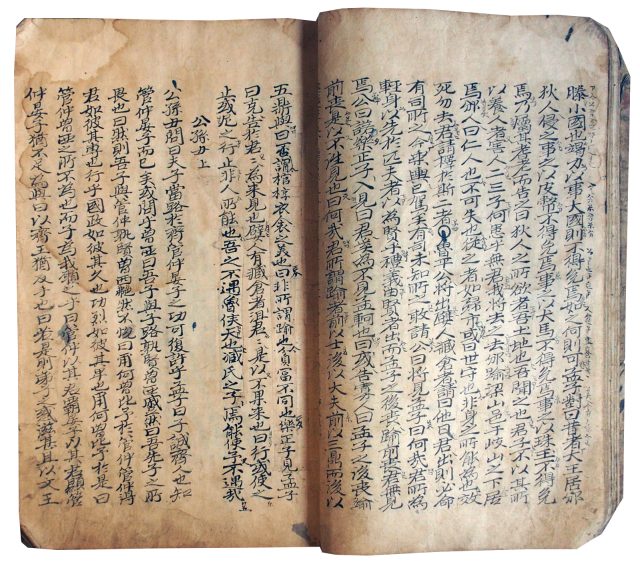 滕小國也竭力以事大國則不得免焉如之何則可孟子對曰昔者大王居邠
狄人侵之事之以皮幣不得免焉事之以犬馬不得免焉事之以珠玉不得免
焉乃屬其耆老而告之曰狄人之所欲者吾土地也吾聞之也君子不以其所
以養人者害人二三子何患乎無君我將去之去邠踰梁山邑于岐山之下居
焉邠人曰仁人也不可失也從之者如歸市或曰世守也非身之所能為也效
死勿去君請擇於斯二者○魯平公將出嬖人臧倉者請曰他日君出則必命
有司所之今乘輿已駕矣有司未知所之敢請公曰將見孟子曰何哉君所為
輕身以先於匹夫者以為賢乎禮義由賢者出而孟子之後喪踰前喪君無見
焉公曰諾樂正子入見曰君奚為不見孟軻也曰或告寡人曰孟子之後喪踰
前喪是以不往見也曰何哉君所謂踰者前以士後以大夫前以三鼎而後以
五鼎與曰否謂棺槨衣衾之美也曰非所謂踰也貧富不同也樂正子見孟子
曰克告於君〻為來見也嬖人有臧倉者沮君〻是以不果來也曰行或使之
止或尼之行止非人所能也吾之不遇魯侯天也臧氏之子焉能使予不遇哉
公孫丑上
公孫丑問曰夫子當路於齊管仲晏子之功可復許乎孟子曰子誠齊人也知
管仲晏子而已矣或問乎曾西曰吾子與子路孰賢曾西蹵然曰吾先子之所
畏也曰然則吾子與管仲孰賢曾西艴然不悅曰爾何曾比予於管仲管仲得
君如彼其專也行乎國政如彼其久也功烈如彼其卑也爾何曾比予於是曰
管仲曾西之所不為也而子為我願之乎曰管仲以其君霸晏子以其君顯管
仲晏子猶不足為與曰以齊王猶反手也曰若是則弟子之惑滋甚且以文王